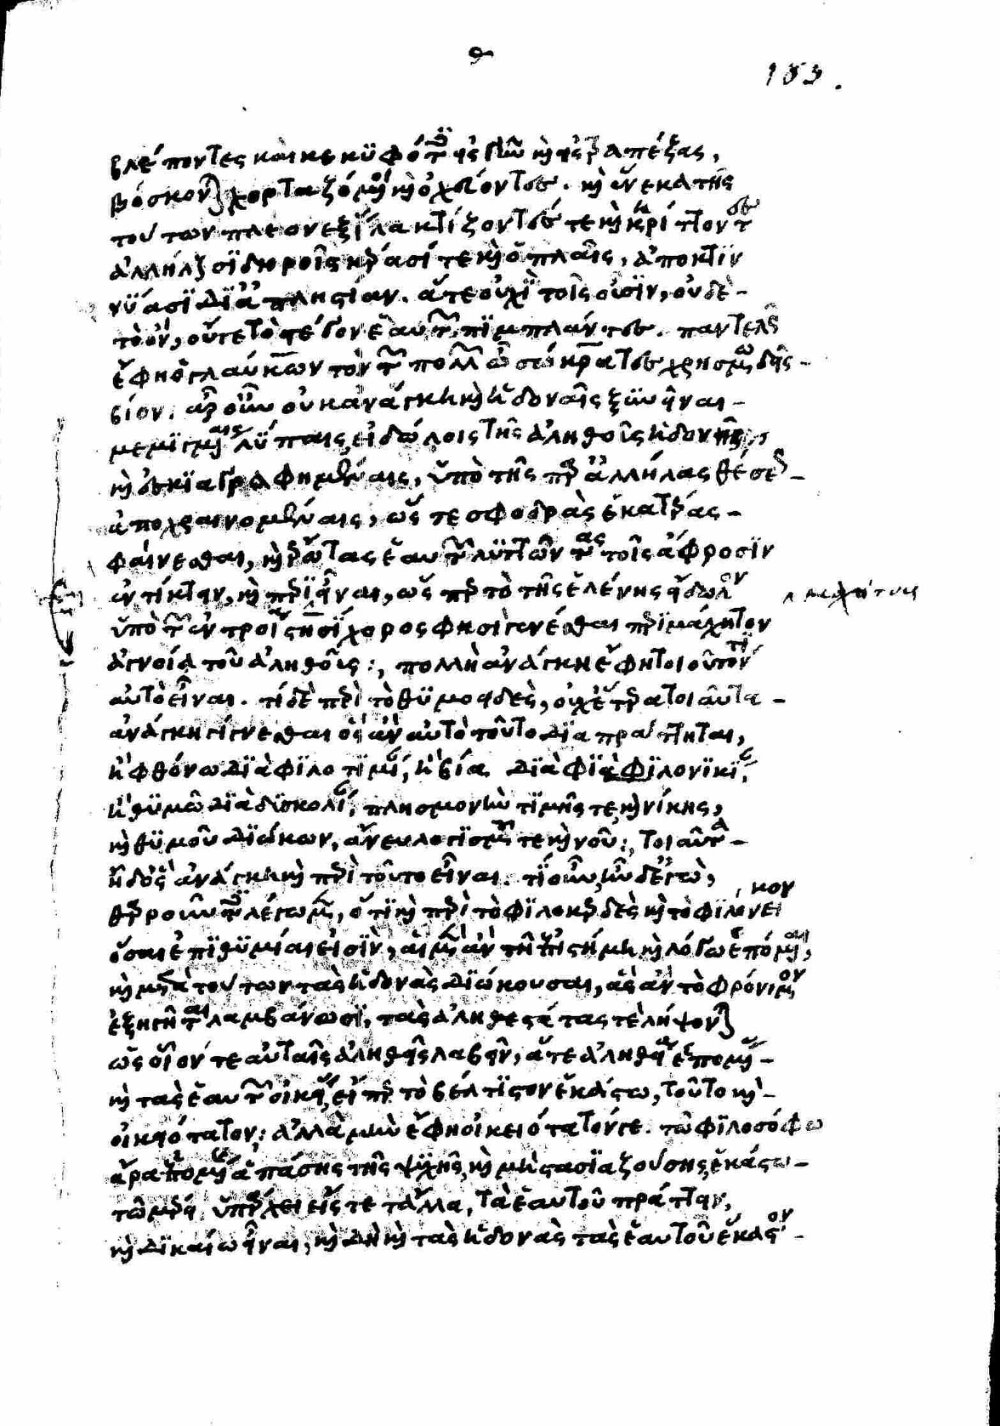 θ
183.
βλέποντες καὶ κεκυφότες εἰς γῆν καὶ εἰς τραπέζας,
βόσκονται χορταζόμενοι καὶ ὀχεύοντες. καὶ ἕνεκα τῆς
τούτων πλεονεξίας λακτίζοντες τε καὶ κυρίττοντες
ἀλλήλους σιδηροῖς κέρασί τε καὶ ὅπλαῖς, ἀποκτιν
νύασι δι' ἀπληστίαν. ἅτε οὐχὶ τοῖς οὖσιν, οὐδὲ -
τὸ ὂν, οὔτε τὸ στέγον ἑαυτῶν πιμπλάντες. παντελῶς
ἔφη ὁ γλαύκων τὸν τῶν πολλῶν ὦ σώκρατες χρησμωδεῖς -
βίον. ἆρ' οὖν οὐκ ἀνάγκη καὶ ἡδοναῖς ξυνεῖναι -
μεμιγμέναις λύπαις, εἰδώλοις τῆς ἀληθοῦς ἡδονῆς,
καὶ ἐσκιαγραφημέναις, ὑπὸ τῆς παρ' ἀλλήλας θέσεως -
ἀποχραινομέναις, ὥστε σφοδρὰς ἑκατέρας -
φαίνεσθαι, καὶ ἔρωτας ἑαυτῶν λυττῶντας τοῖς ἄφροσιν
ἐντίκτειν, καὶ περὶ εἶναι, ὥσπερ τὸ τῆς ἑλένης εἴδωλον
μαχήτους
ὑπὸ τῶν ἐν τροίᾳ στησίχορος φησὶ γενέσθαι περιμάχητον
ἀγνοίᾳ τοῦ ἀληθοῦς:, πολλὴ ἀνάγκη ἔφη τοιοῦτόν τι
αὐτὸ εἶναι. τί δὲ περὶ τὸ θυμοειδὲς, οὐχ ἕτερα τοιαῦτα -
ἀνάγκη γίγνεσθαι ὃς ἂν αὐτὸ τοῦτο διαπράττηται,
ἢ φθόνω διὰ φιλοτιμίαν, ἢ βίᾳ διὰ φιλονικίαν,
ἢ θυμῶ διὰ δυσκολίαν, πλησμονὴν τιμῆς τε καὶ νίκης,
καὶ θυμοῦ διώκων, ἄνευ λογισμοῦ τε καὶ νοῦ:, τοιαῦτα -
ἦ δὸς ἀνάγκη καὶ περὶ τοῦτο εἶναι. τί οὖν, ἦν δ' ἐγὼ,
θαρροῦντες λέγωμεν, ὅτι καὶ περὶ τὸ φιλοκερδὲς καὶ τὸ φιλόνεικον
ὅσαι ἐπιθυμίαι εἰσὶν, αἱ μὲν ἂν τῇ ἐπιστήμη καὶ λόγω ἑπόμεναι,
καὶ μετὰ τούτων τὰς ἡδονὰς διώκουσαι, ἃς ἂν τὸ φρόνιμον
ἐξηγῆται λαμβάνωσι, τὰς ἀληθεστάτας τε λήψονται
ὡς οἷόν τε αὐταῖς ἀληθεῖς λαβεῖν, ἅτε ἀληθείᾳ ἑπομένων -
καὶ τὰς ἑαυτῶν οἰκείας, εἴπερ τὸ βέλτιστον ἑκάστω, τοῦτο καὶ -
οἰκειότατον: ἀλλὰ μὴν ἔφη οἰκειότατόν γε. τῶ φιλοσόφω
ἄρα ἑπομένης ἁπάσης τῆς ψυχῆς, καὶ μὴ στασιαζούσης, ἑκάστω -
τῶ μέρει ὑπάρχει εἴς τε τἆλλα, τὰ ἑαυτοῦ πράττειν,
καὶ δικαίω εἶναι, καὶ δὴ καὶ τὰς ἡδονὰς τὰς ἑαυτοῦ ἕκαστον -